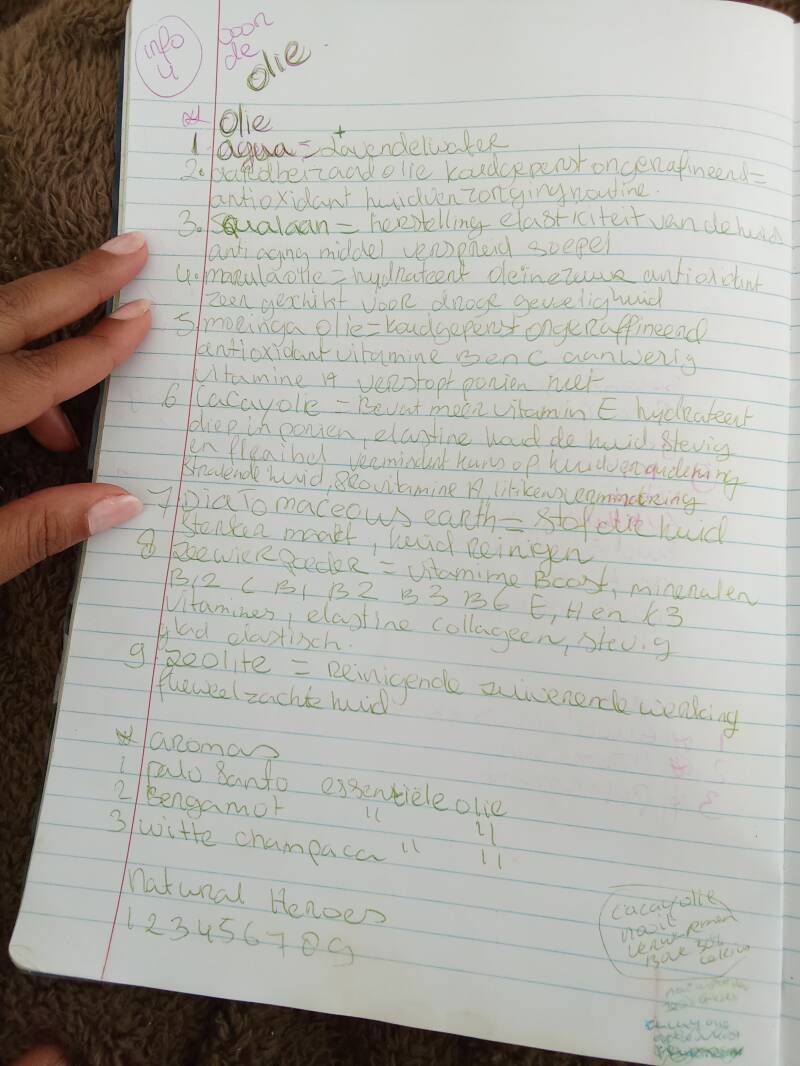 info
4
voor
de
olie
olie
1 aqua = Lavendelwater
2. olie koudgeperst ongerafineerd =
antioxidant huidverzorging routine.
3. Squalaan = herstelling elasticiteit van de huid
anti aging middel verspreid soepel
4. marula olie = hydrateert antioxidant
zeer geschikt voor droge gevoelighuid
5 moringa olie = koudgeperst ongeraffineerd
antioxidant vitamine B en C aanwezig
vitamine A verstopt poriën niet
6 Cacay olie = Bevat meer vitamin E hydrateert
diep in poriën, elastine houd de huid stevig
en flexibel vermindert kans op huidveroudering
stralende huid, vitamine A, litikensvermindering
7 Diatomaceous earth = stof die huid
sterker maakt, huid reinigen
8 Zeewierpoeder = vitamine Boost, mineralen
B12 C B1 B2 B3 B6 E, H en K3
vitamines, elastine collageen, stevig
glad elastisch.
9 Zeolite = Reinigende zuiverende werking
fluweelzachte huid
aromas
1 palo Santo essentiële olie
2 Bergamot " "
3 witte champaca " "
natural Heroes
1 2 3 4 5 6 7 8 9
cacayolie
nooit
verwarmen